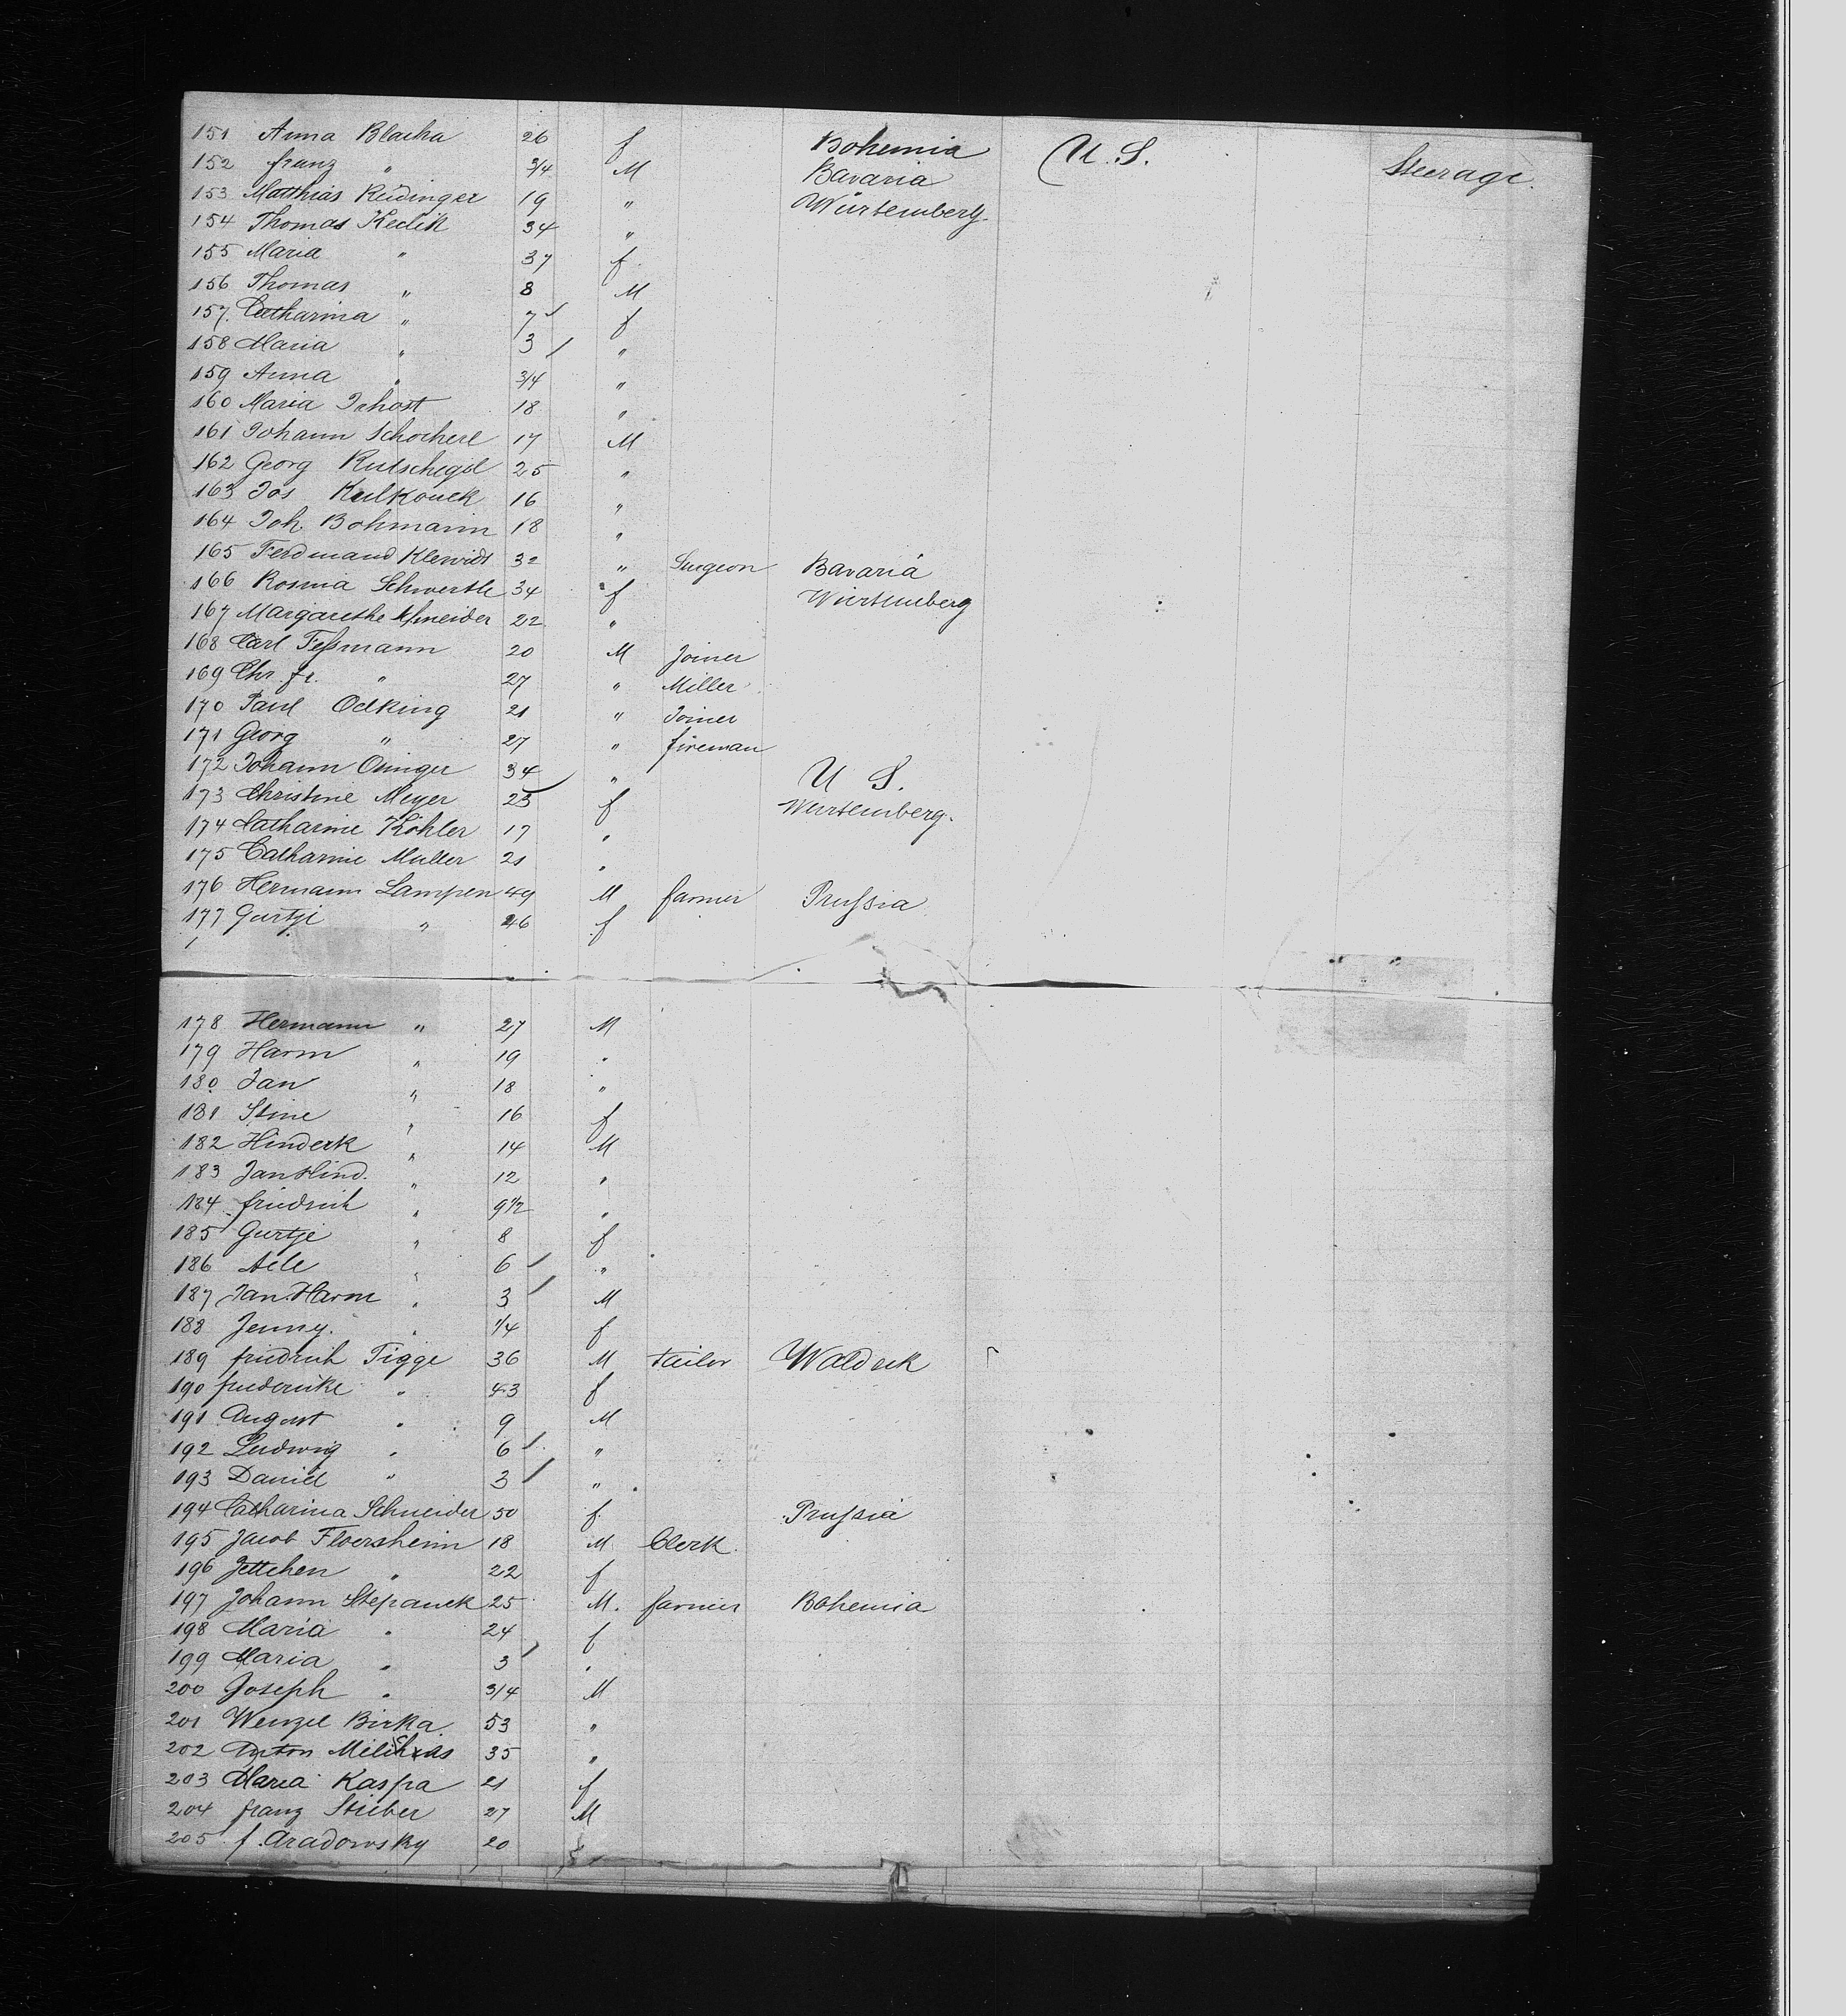 151 Anna Blacha 26 f Bohemia U. S. Steerage.
152 franz " 3/4 M Bavaria
153 Matthias Reidinger 19 " Würtemberg
154 Thomas Keclik 34 "
155 Maria " 37 f.
156 Thomas " 8 M
157. Catharina " 7 f
158 Maria " 3 "
159 Anna " 3/4 "
160 Maria 18 "
161 Johann Schocherl 17 M
162 Georg 25 "
163 Jos 16 "
164 Joh. Bohmann 18 "
165 Ferdinand Klewidt 32 " Surgeon Bavaria
166 Rosina Schwertle 34 f Würtemberg
167 Margarethe Schneider 22 "
168 Carl Feßmann 20 M Joiner
169 Chr. fr. " 27 " Miller
170 Paul Oelking 21 " Joiner
171 Georg " 27 " fireman
172 Johann 34 " U S.
173 Christine Meyer 25 f Würtemberg.
174 Catharine Köhler 17 "
175 Catharine Muller 21 "
176 Hermann Lampen 49 M farmer Prußia
177 Geertje " 46 f
178 Hermann " 27 M
179 Harm " 19 "
180 Jan " 18 "
181 Stine " 16 f
182 Hinderk " 14 M
183 Jan Hind. " 12 "
184 friedrich " 9 1/2 "
185 Geertje " 8 f
186 Aele " 6 "
187 Jan Harm " 3 M
188 Jenny. " 1/4 f
189 friedrich Tigge 36 M tailor Waldeck
190 friederike " 43 f
191 August " 9 M
192 Ludwig " 6 "
193 Daniel " 3 "
194 Catharina Schneider 50 f. Prußia
195 Jacob Floersheim 18 M Clerk
196 Jettchen " 22 f
197 Johann Stepanek 25 M. farmer Bohemia
198 Maria " 24 f
199 Maria " 3 "
200 Joseph " 3/4 M
201 Wenzel Birka 53 "
202 Anton 35 "
203 Maria Kaspa 21 f
204 franz Stieber 27 M
205 f. Aradowsky 20